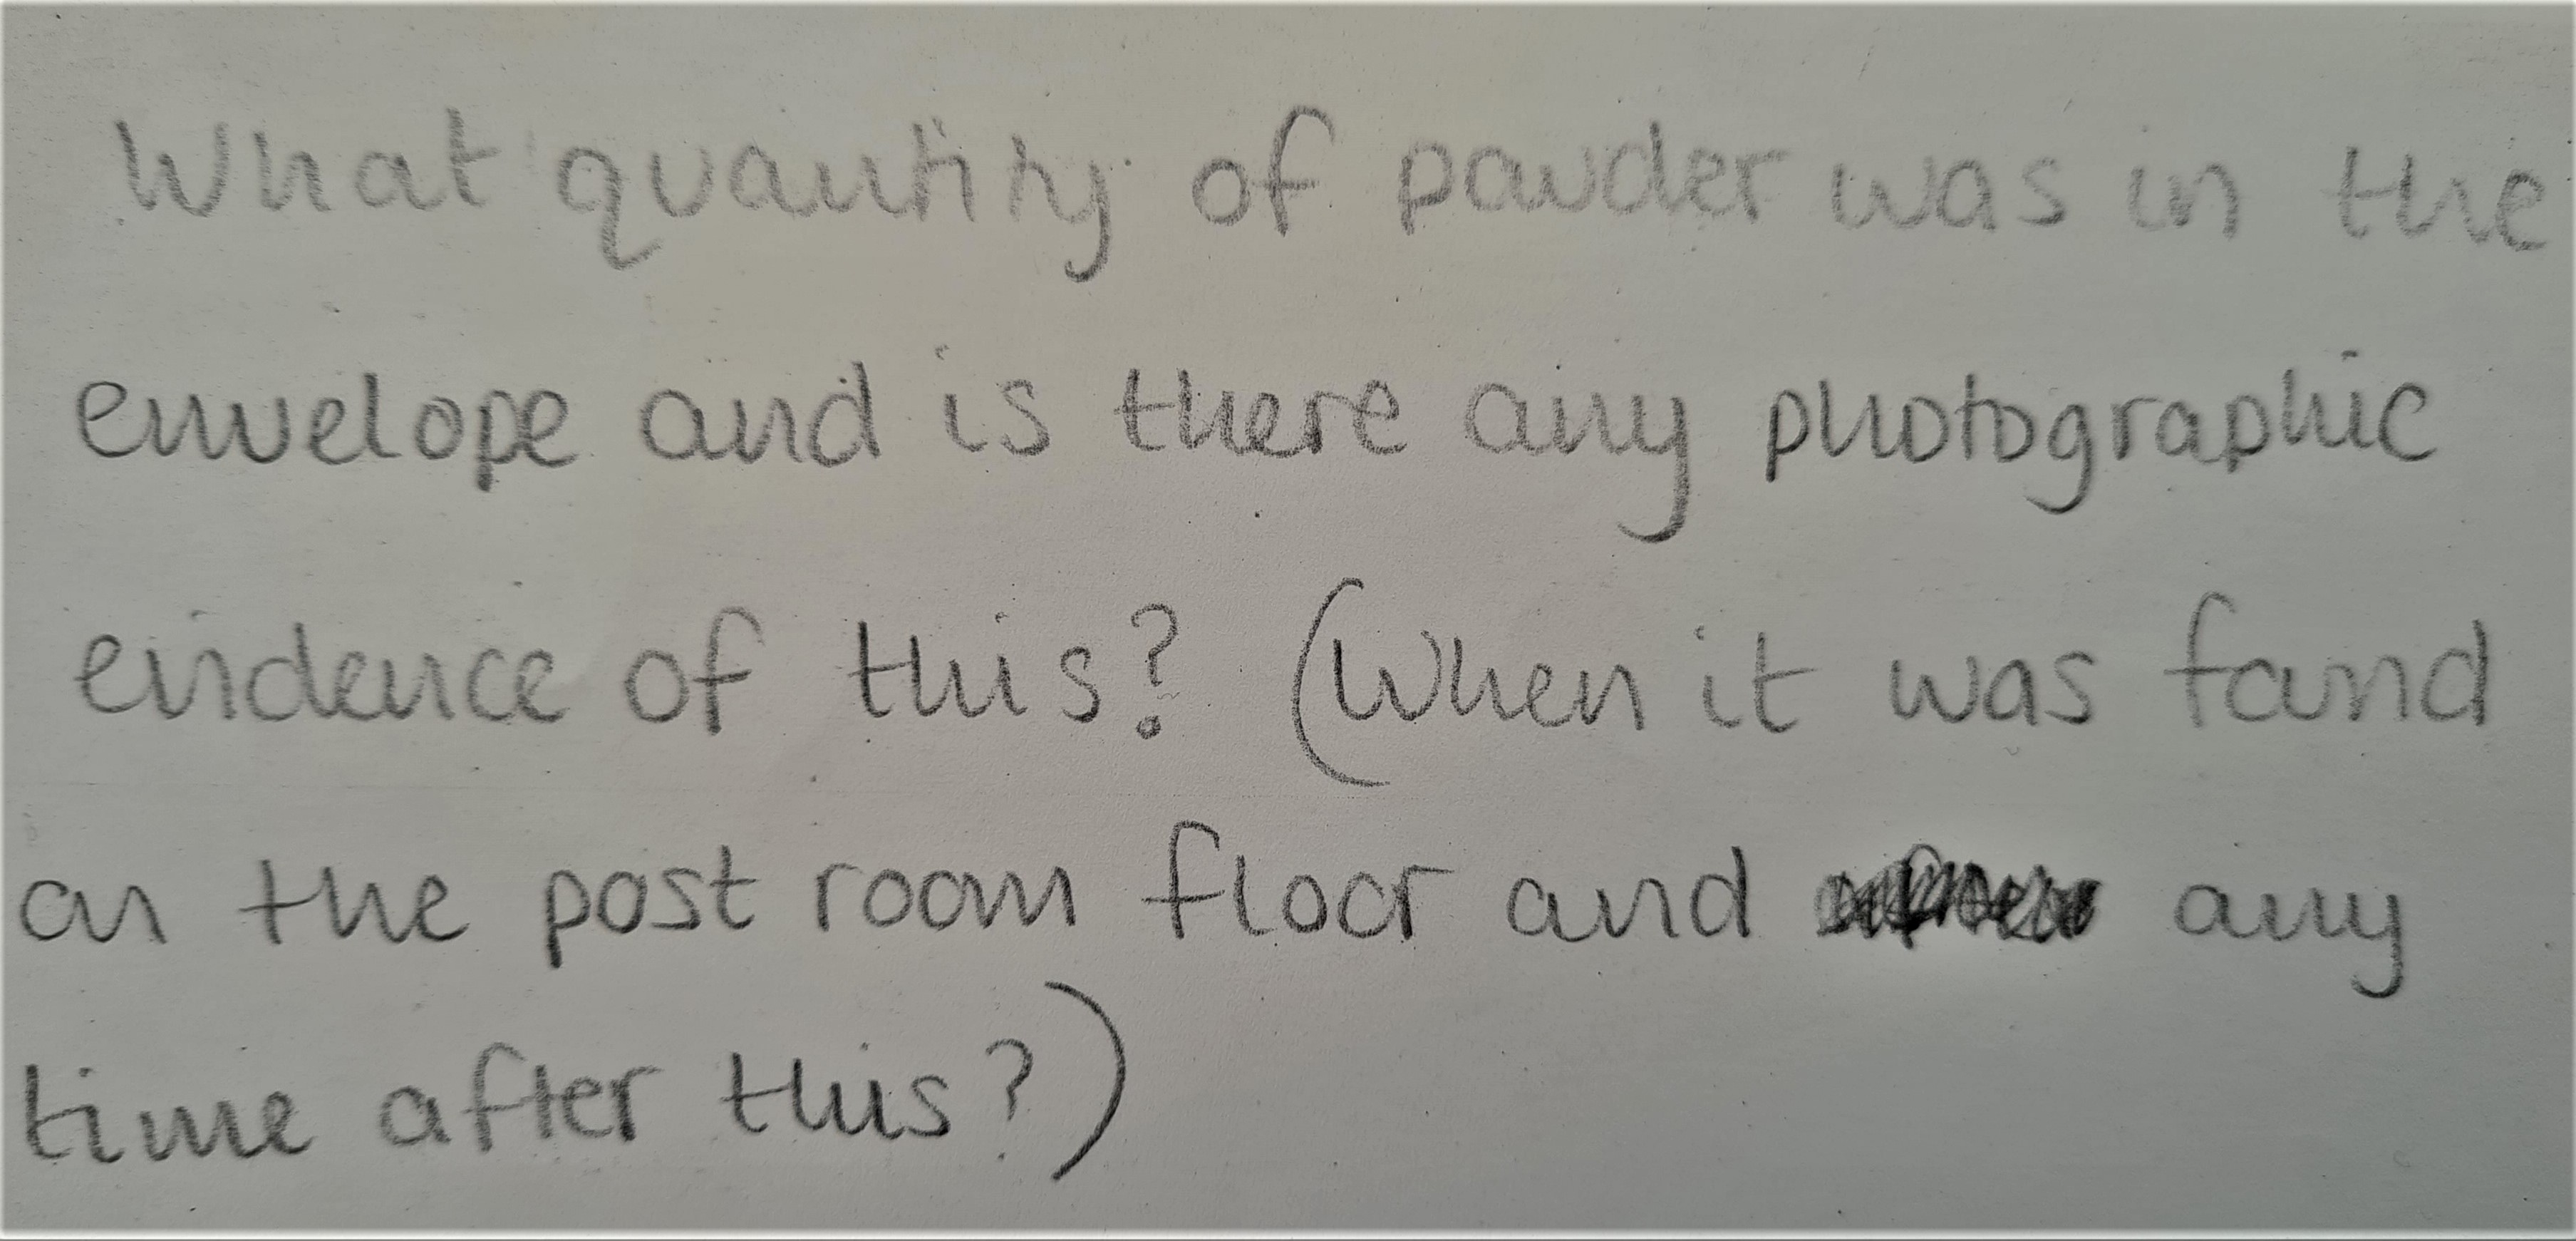 What quantity of powder was in the
envelope and is there any photographic
evidence of this? (When it was found
on the post room floor and any
time after this?)